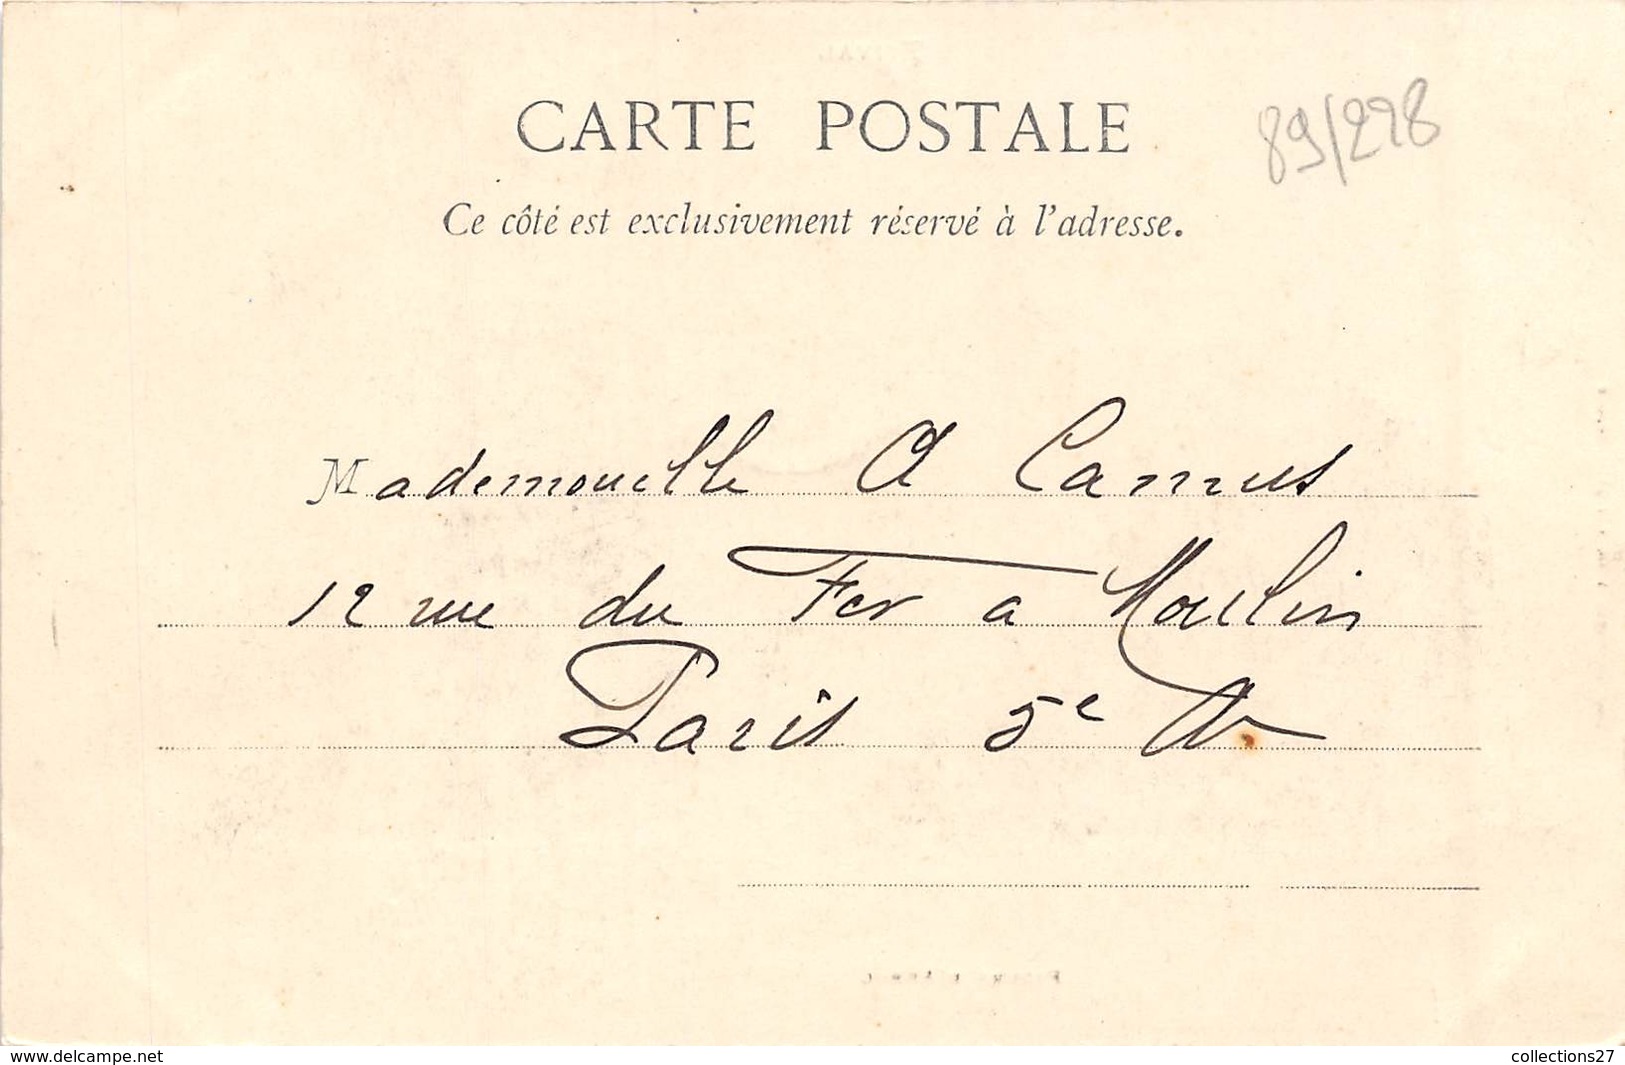 CARTE POSTALE
89/298
Ce côté est exclusivement réservé à l'adresse.
Mademoiselle A Camus
12 rue du Fer a Moulin
Paris 5e Ar
www.delcampe.net
collections27